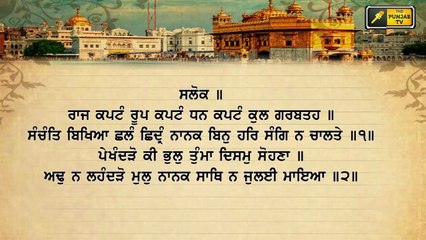 THE
PUNJAB
TV
ਸਲੋਕ ॥
ਰਾਜ ਕਪਟੰ ਰੂਪ ਕਪਟੰ ਧਨ ਕਪਟੰ ਕੁਲ ਗਰਬਤਹ ॥
ਸੰਚੰਤਿ ਬਿਖਿਆ ਛਲੰ ਛਿਦ੍ਰੰ ਨਾਨਕ ਬਿਨੁ ਹਰਿ ਸੰਗਿ ਨ ਚਾਲਤੇ ॥੧॥
ਪੇਖੰਦੜੋ ਕੀ ਭੁਲੁ ਤੁੰਮਾ ਦਿਸਮੁ ਸੋਹਣਾ ॥
ਅਢੁ ਨ ਲਹੰਦੜੋ ਮੁਲੁ ਨਾਨਕ ਸਾਥਿ ਨ ਜੁਲਈ ਮਾਇਆ ॥੨॥